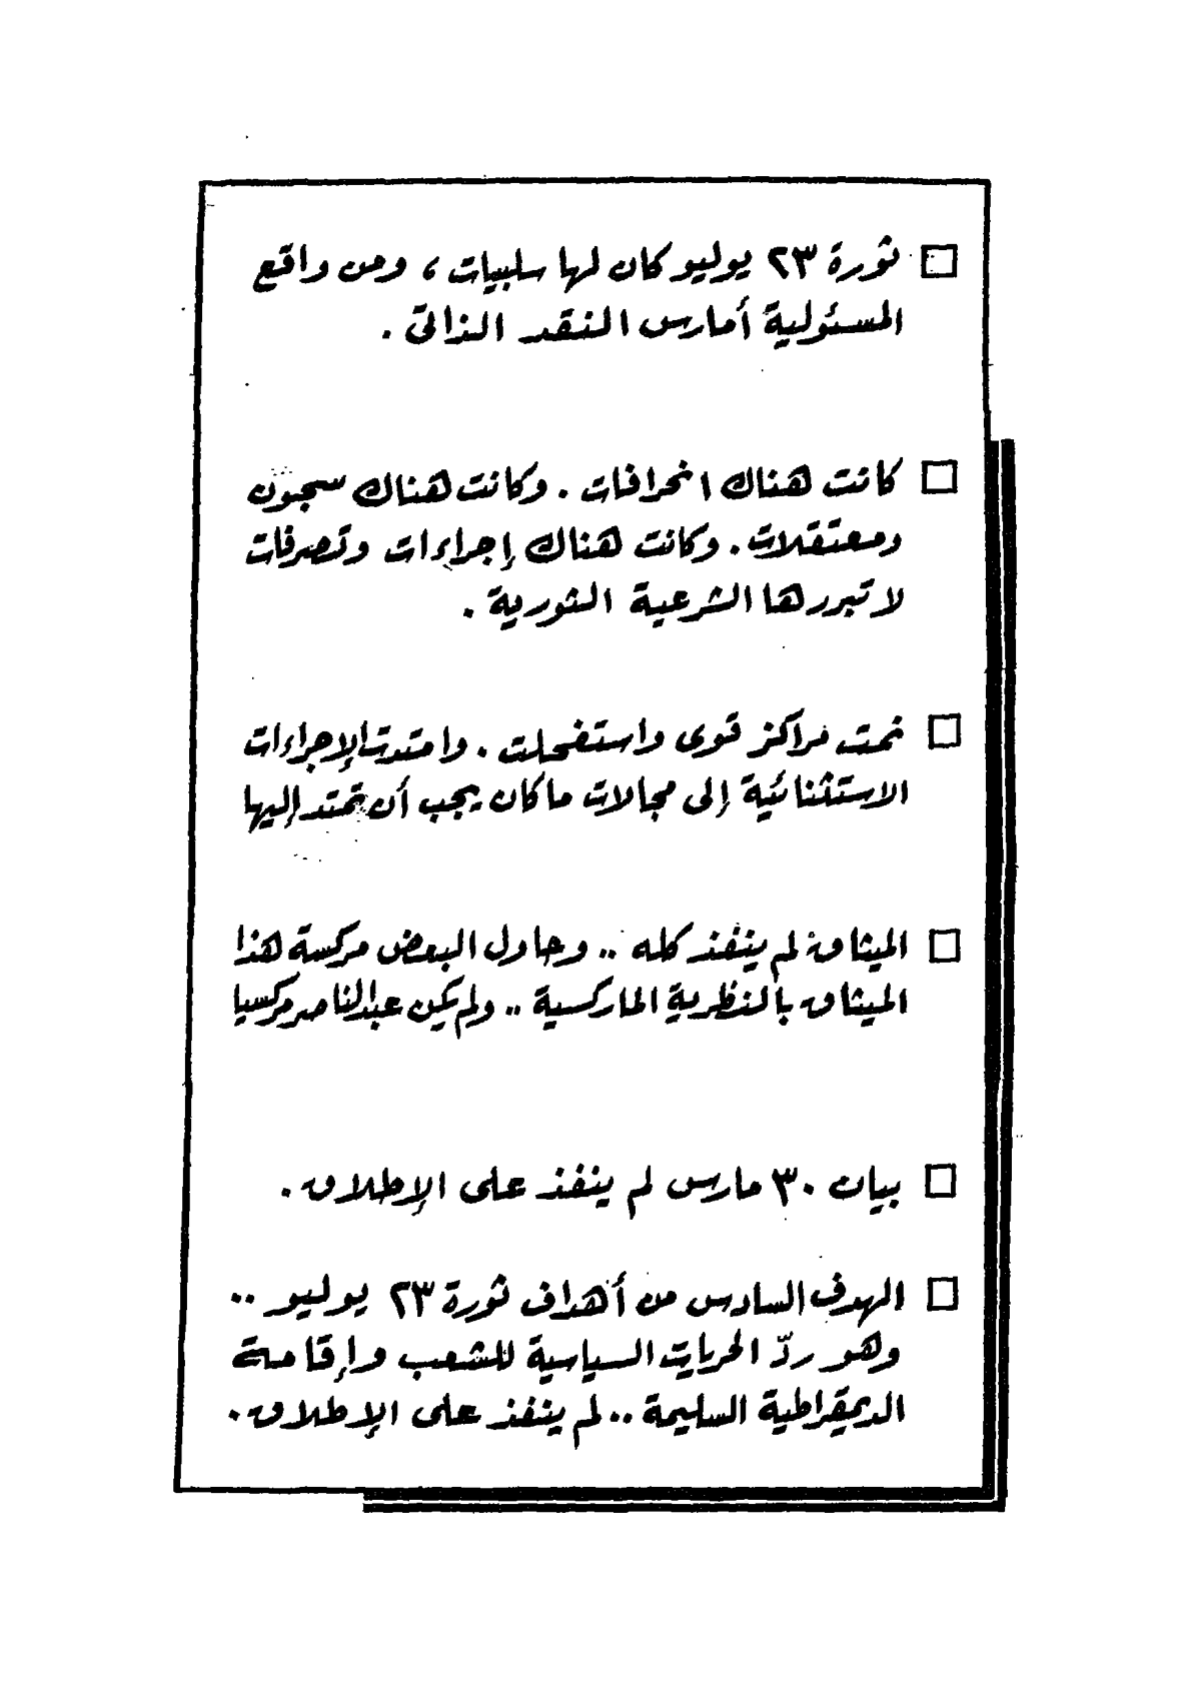 □ ثورة ٢٣ يوليو كان لها سلبيات ، ومن واقع
المسئولية أمارس النقد الذاتى .
□ كانت هناك انحرافات . وكانت هناك سجون
ومعتقلات . وكانت هناك إجراءات وتصرفات
لا تبررها الشرعية الثورية .
□ نمت مراكز قوى واستفحلت . وامتدت الإجراءات
الاستثنائية إلى مجالات ما كان يجب أن تمتد إليها
□ الميثاق لم ينفذ كله .. وحاول البعض مركسة هذا
الميثاق بالنظرية الماركسية .. ولم يكن عبدالناصر مركسيا
□ بيان ٣٠ مارس لم ينفذ على الإطلاق .
□ الهدف السادس من أهداف ثورة ٢٣ يوليو ..
وهو ردّ الحريات السياسية للشعب وإقامة
الديمقراطية السليمة .. لم ينفذ على الإطلاق .